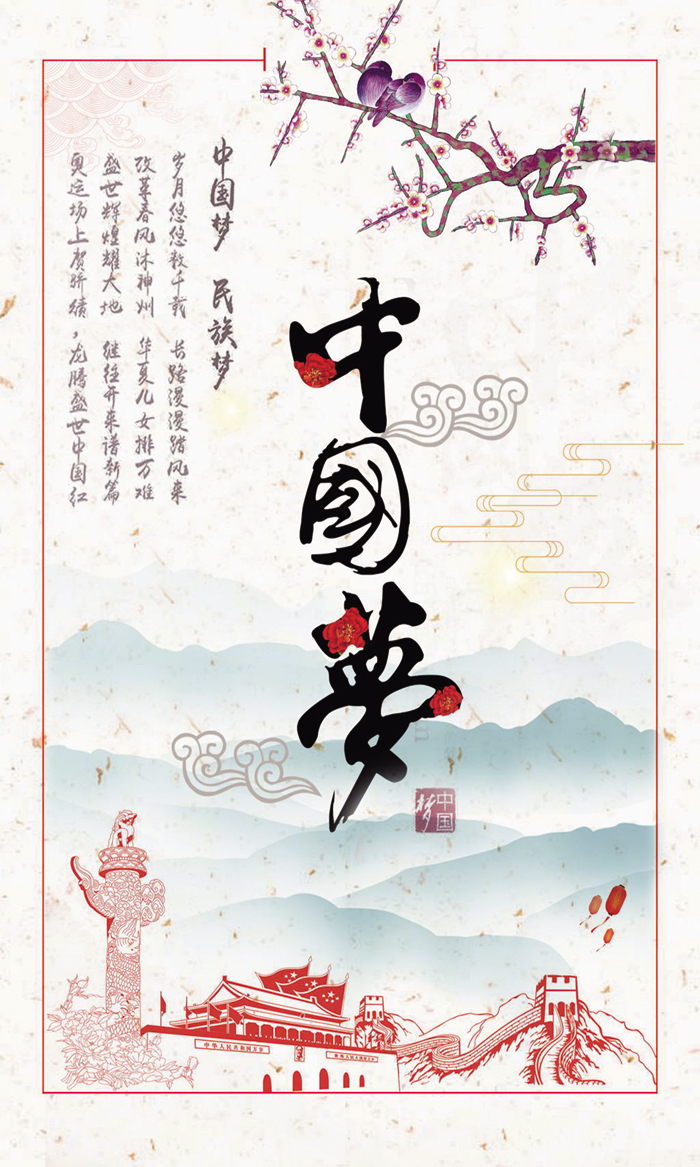 中国梦 民族梦
岁月悠悠数千载 长路漫漫踏风来
改革春风沐神州 华夏儿女排万难
盛世辉煌耀大地 继往开来谱新篇
奥运场上贺骄绩，龙腾盛世中国红
中國夢
中国梦
中华人民共和国万岁